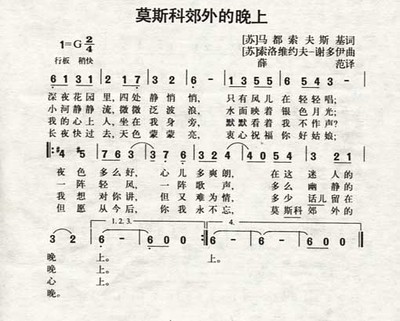 莫斯科郊外的晚上
1=G 2/4
[苏]马都索夫斯基词
[苏]索洛维约夫-谢多伊曲
行板 稍快
薛 范译
6 1 3 1 | 2 1 7 | 3 2 | 6 - | 1 3 5 5 | 6 5 4 | 3 - |
深夜花园里,四处静悄悄,只有风儿在轻轻唱;
小河静静流,微微泛波浪,水面映着银色月光;
我的心上人,坐在我身旁,默默看着我不作声;
长夜快过去,天色蒙蒙亮,衷心祝福你好姑娘,
夜色多么好,心儿多爽朗,在这迷人的
一阵轻风,一阵歌声,多么幽静的
我想对你讲,但又难为情,多少话儿留在
但愿从今后,你我永不忘,莫斯科郊外的
1. 2. 3.
4.
3 2 | 6 - | 6 0 0 :‖ 6 - | 6 - | 6 0 0 ‖
晚上。
晚上。
心上。
晚。